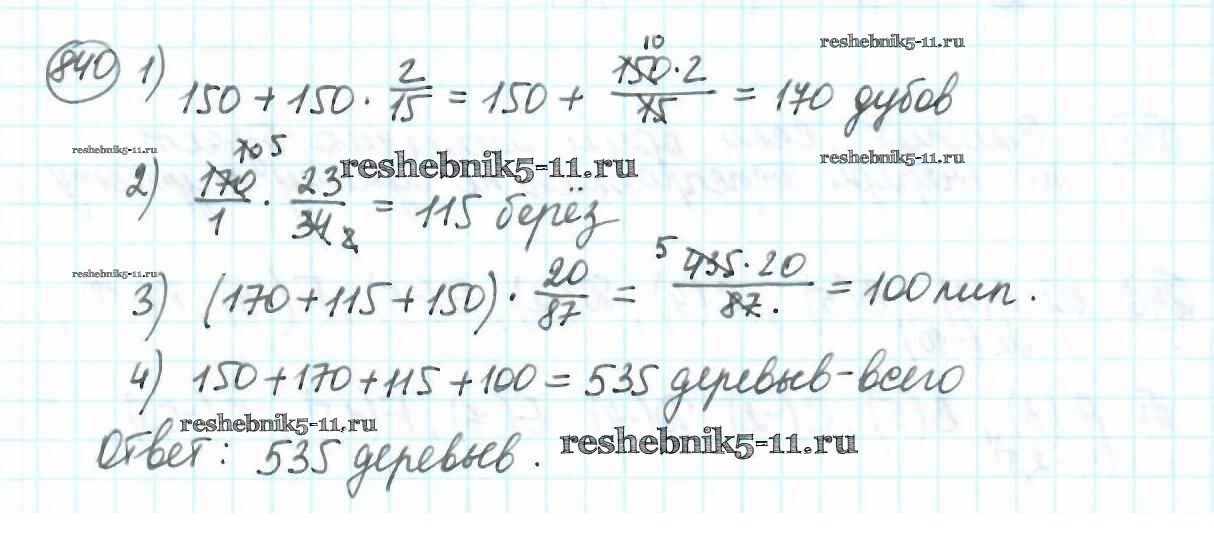 reshebnik5-11.ru
840 1) 150 + 150 · 2/15 = 150 + 150·2/15 = 170 дубов
10
reshebnik5-11.ru reshebnik5-11.ru reshebnik5-11.ru
2) 170/1 · 23/34 = 115 берёз
5
2
reshebnik5-11.ru
3) (170 + 115 + 150) · 20/87 = 435·20/87 = 100 лип.
5
4) 150 + 170 + 115 + 100 = 535 деревьев - всего
reshebnik5-11.ru
Ответ: 535 деревьев.
reshebnik5-11.ru